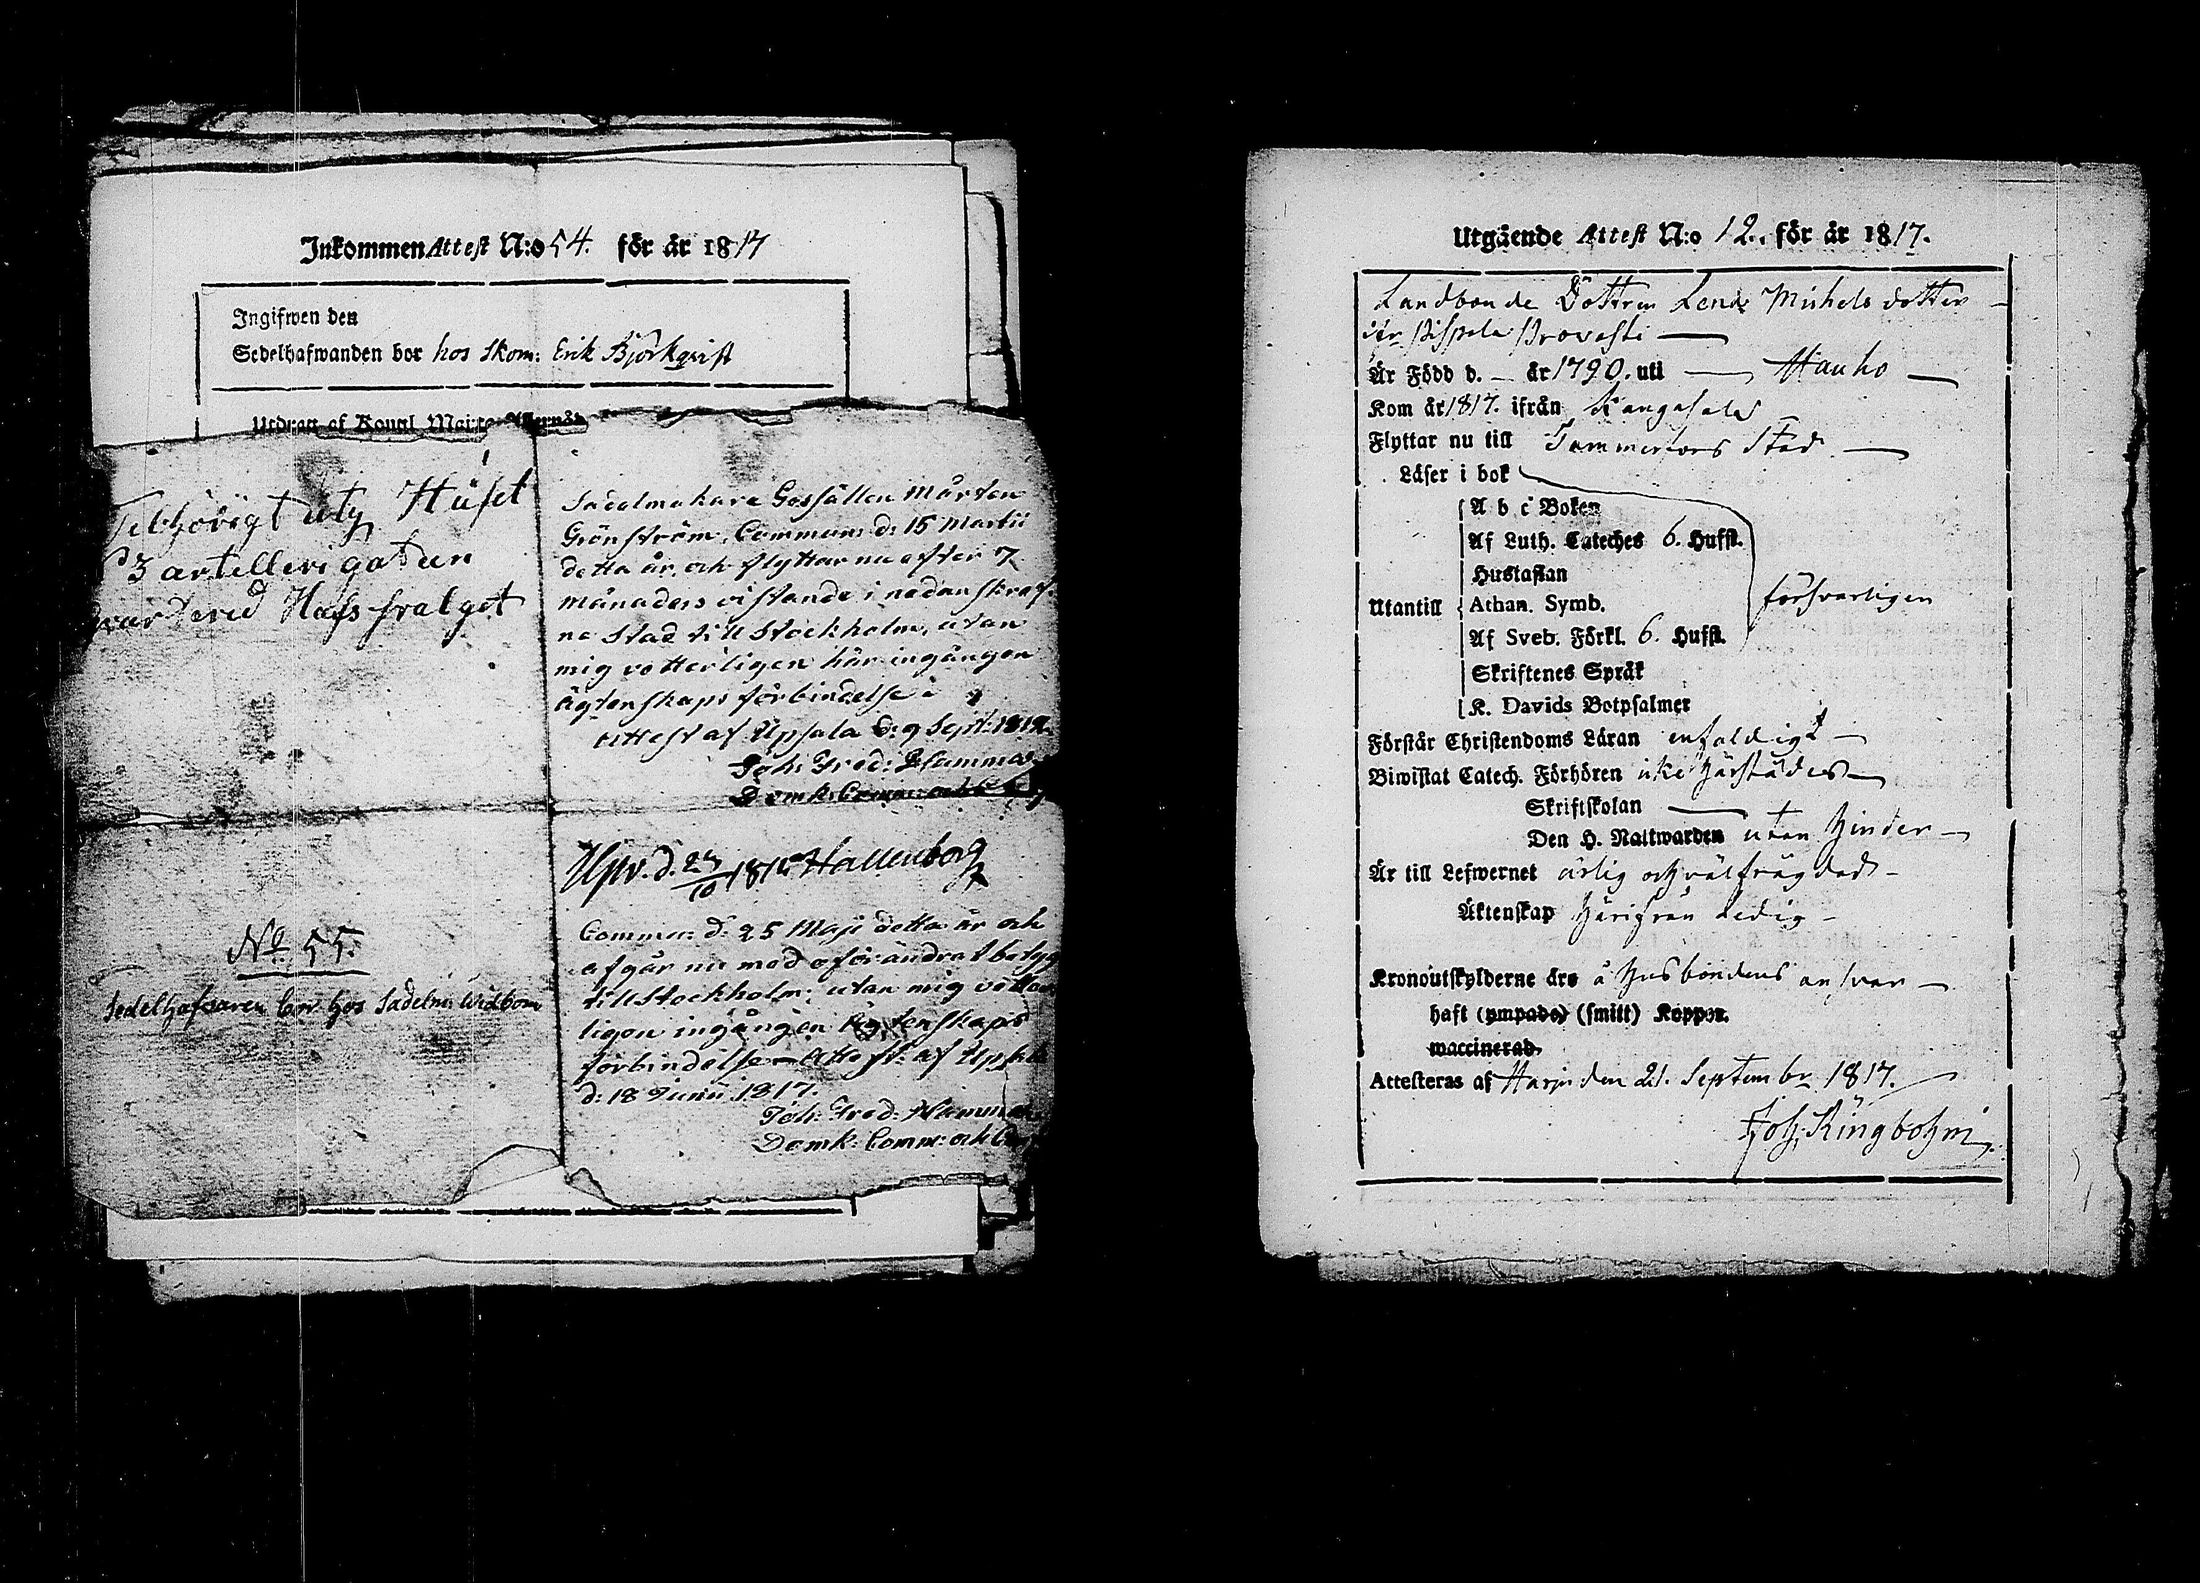 Inkommen Attest N:o 54. för år 1817
Ingifwen den
Sedelhafwanden bor hos Skom: Erik Björkqvist
Utdrag af Kongl. Maj:ts
Tilhörigt uty Huset
N 3 artellerigatan
qvarterid Hafs fralget
No 55.
Sedelhafvaren bor hos Sadelm: Widbom
Sadelmakare Gesällen Mårten
Grönström, Commun: d: 15 Martii
detta år, och flyttar nu efter 7
månaders vistande i nedanskref-
ne Stad till Stockholm, utan
mig vetterligen här ingången
ägtenskaps förbindelse
Attest af Upsala d: 9 Sept:
Joh: Fred: Hammar
Domk: Comm: och
Upv. d. 27/10 Hallenborg
Commun: d: 25 Maji detta år och
afgår nu med oförändrat betyg
till Stockholm; utan mig vetter
ligen ingången ägtenskaps
förbindelse Attest: af Upsala
d: 18 Junii 1817.
Joh: Fred: Hammar
Domk: Comm: och
Utgående Attest N:o 12. för år 1817.
Landbonde Dottren Lena Michelsdotter
ifr. Pispala Provasti
Är Född d. — år 1790. uti — Hauho —
Kom år 1817. ifrån Kangasala
Flyttar nu till Tammerfors Stad. —
Läser i bok
A b c Boken
Af Luth. Cateches 6. Hufst.
Hustaflan
Utantill Athan. Symb. försvarligen
Af Sveb. Förkl. 6. Hufst.
Skriftenes Språk
K. Davids Botpsalmer
Förstår Christendoms Läran enfaldigt —
Biwistat Catech. Förhören icke härstädes —
Skriftskolan —
Den H. Nattwarden utan hinder —
Är till Lefwernet ärlig och välfrägdad —
Äktenskap härifrån Ledig —
Kronoutskylderne äro å husbondens ansvar —
haft (ympade) (smitt) Koppor.
waccinerad.
Attesteras af Harju den 21. September 1817.
Joh. Ringbohm